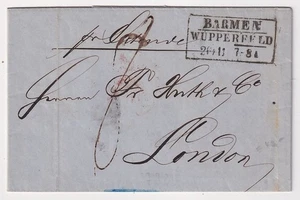 BARMEN
WUPPERFELD
26 11 7-8
pr Ostende
Herren Fr Huth & Co
London